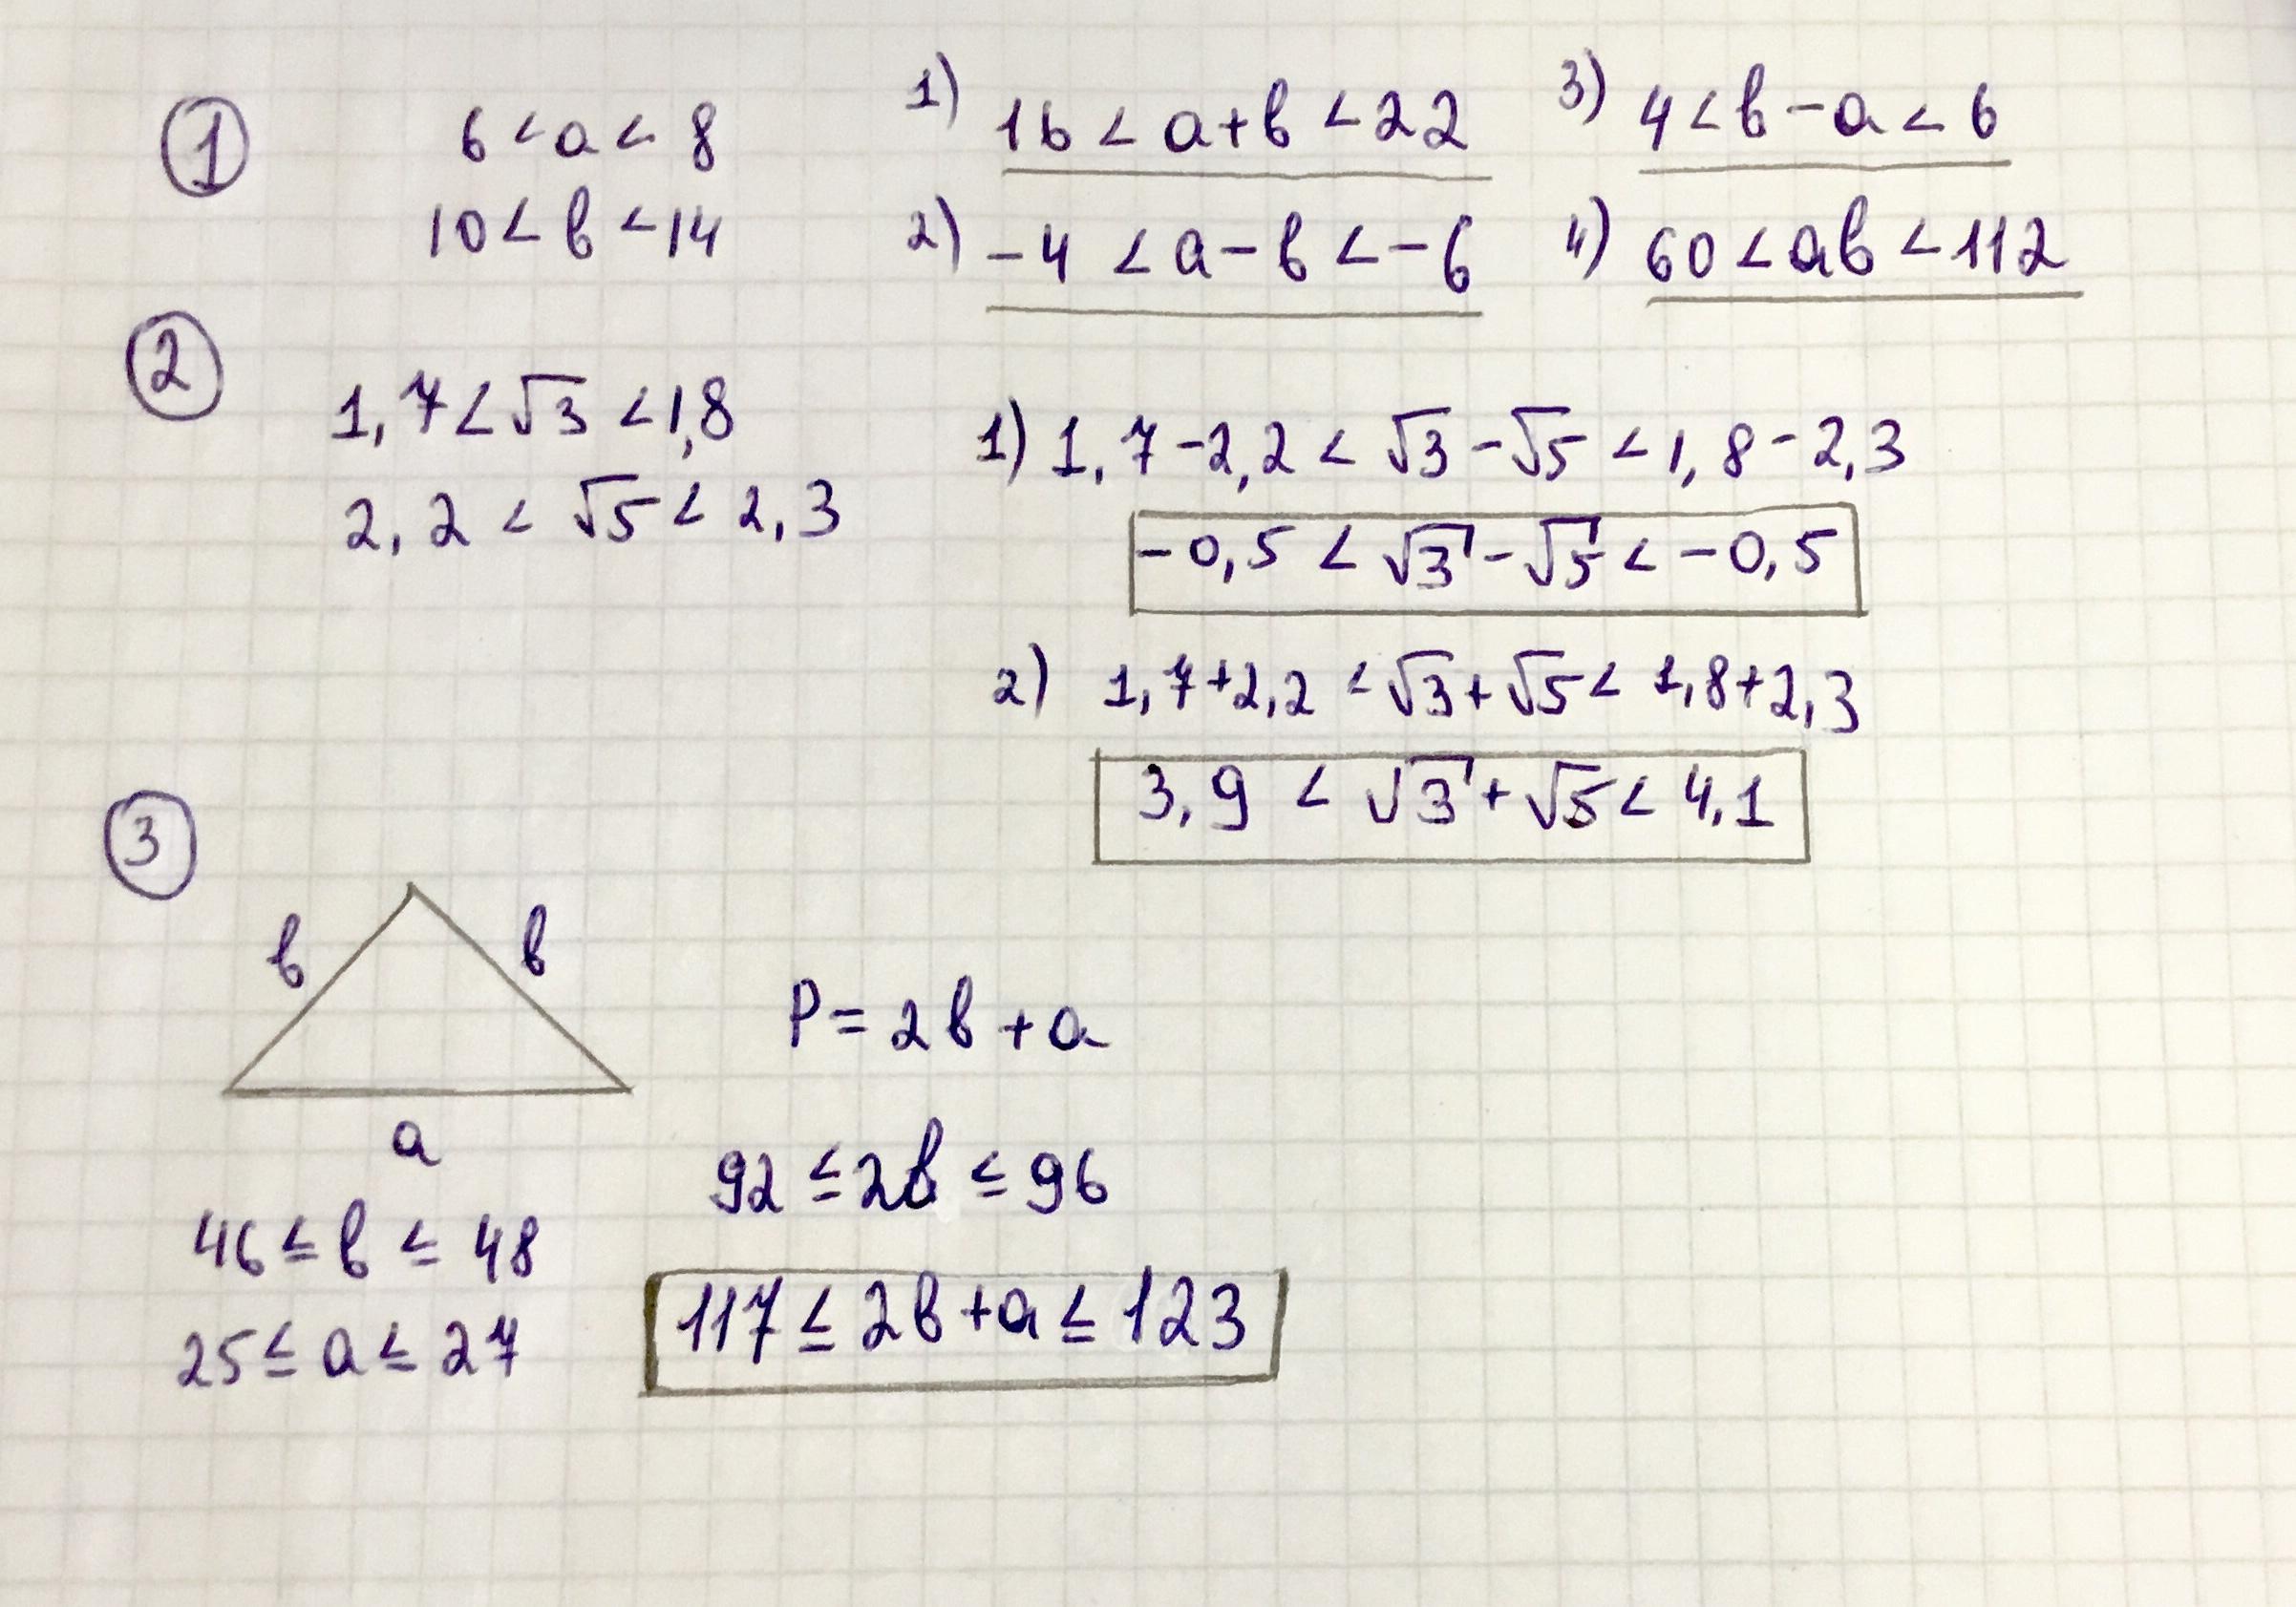 ①
6 < a < 8
10 < b < 14
1) 16 < a+b < 22
2) -4 < a-b < -6
3) 4 < b-a < 6
4) 60 < ab < 112
②
1,7 < √3 < 1,8
2,2 < √5 < 2,3
1) 1,7-2,2 < √3-√5 < 1,8-2,3
-0,5 < √3-√5 < -0,5
2) 1,7+2,2 < √3+√5 < 1,8+2,3
3,9 < √3+√5 < 4,1
③
b b
a
46 ≤ b ≤ 48
25 ≤ a ≤ 27
P = 2b + a
92 ≤ 2b ≤ 96
117 ≤ 2b+a ≤ 123